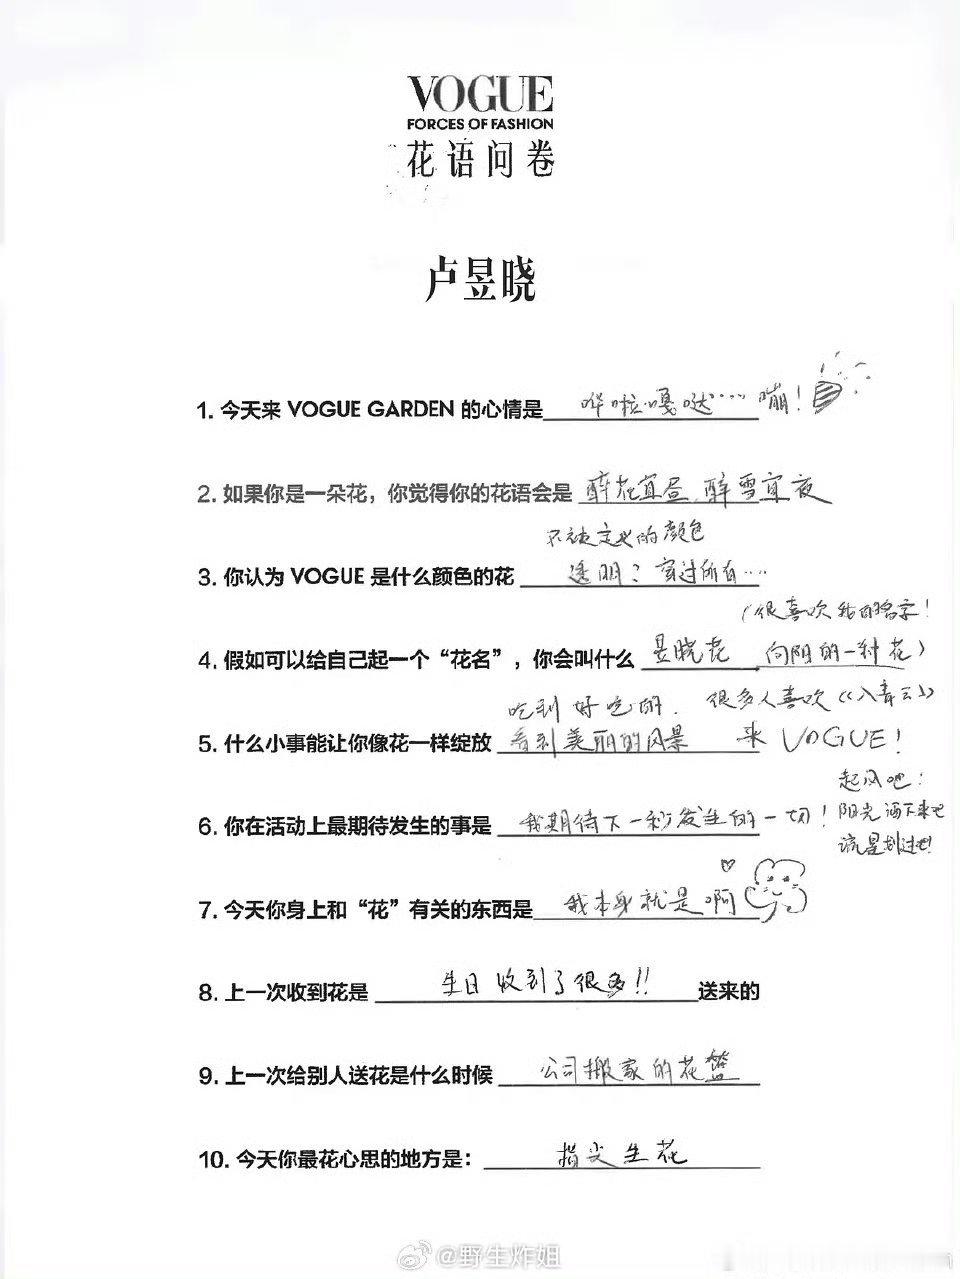 VOGUE
FORCES OF FASHION
花语问卷
卢昱晓
1. 今天来 VOGUE GARDEN 的心情是 哗啦嘎哒…… 嘣！
2. 如果你是一朵花，你觉得你的花语会是 醉花宜昼，醉雪宜夜
不被定义的颜色
3. 你认为 VOGUE 是什么颜色的花 透明？穿过所有……
（很喜欢我的名字！
4. 假如可以给自己起一个“花名”，你会叫什么 昱晓花 向阳的一种花）
吃到好吃的. 很多人喜欢《入青云》
5. 什么小事能让你像花一样绽放 看到美丽的风景 来 VOGUE！
起风吧！
6. 你在活动上最期待发生的事是 我期待下一秒发生的一切！ 阳光洒下来吧
流星划过吧！
7. 今天你身上和“花”有关的东西是 我本身就是啊
8. 上一次收到花是 生日收到了很多!! 送来的
9. 上一次给别人送花是什么时候 公司搬家的花篮
10. 今天你最花心思的地方是： 指尖生花
@野生炸姐